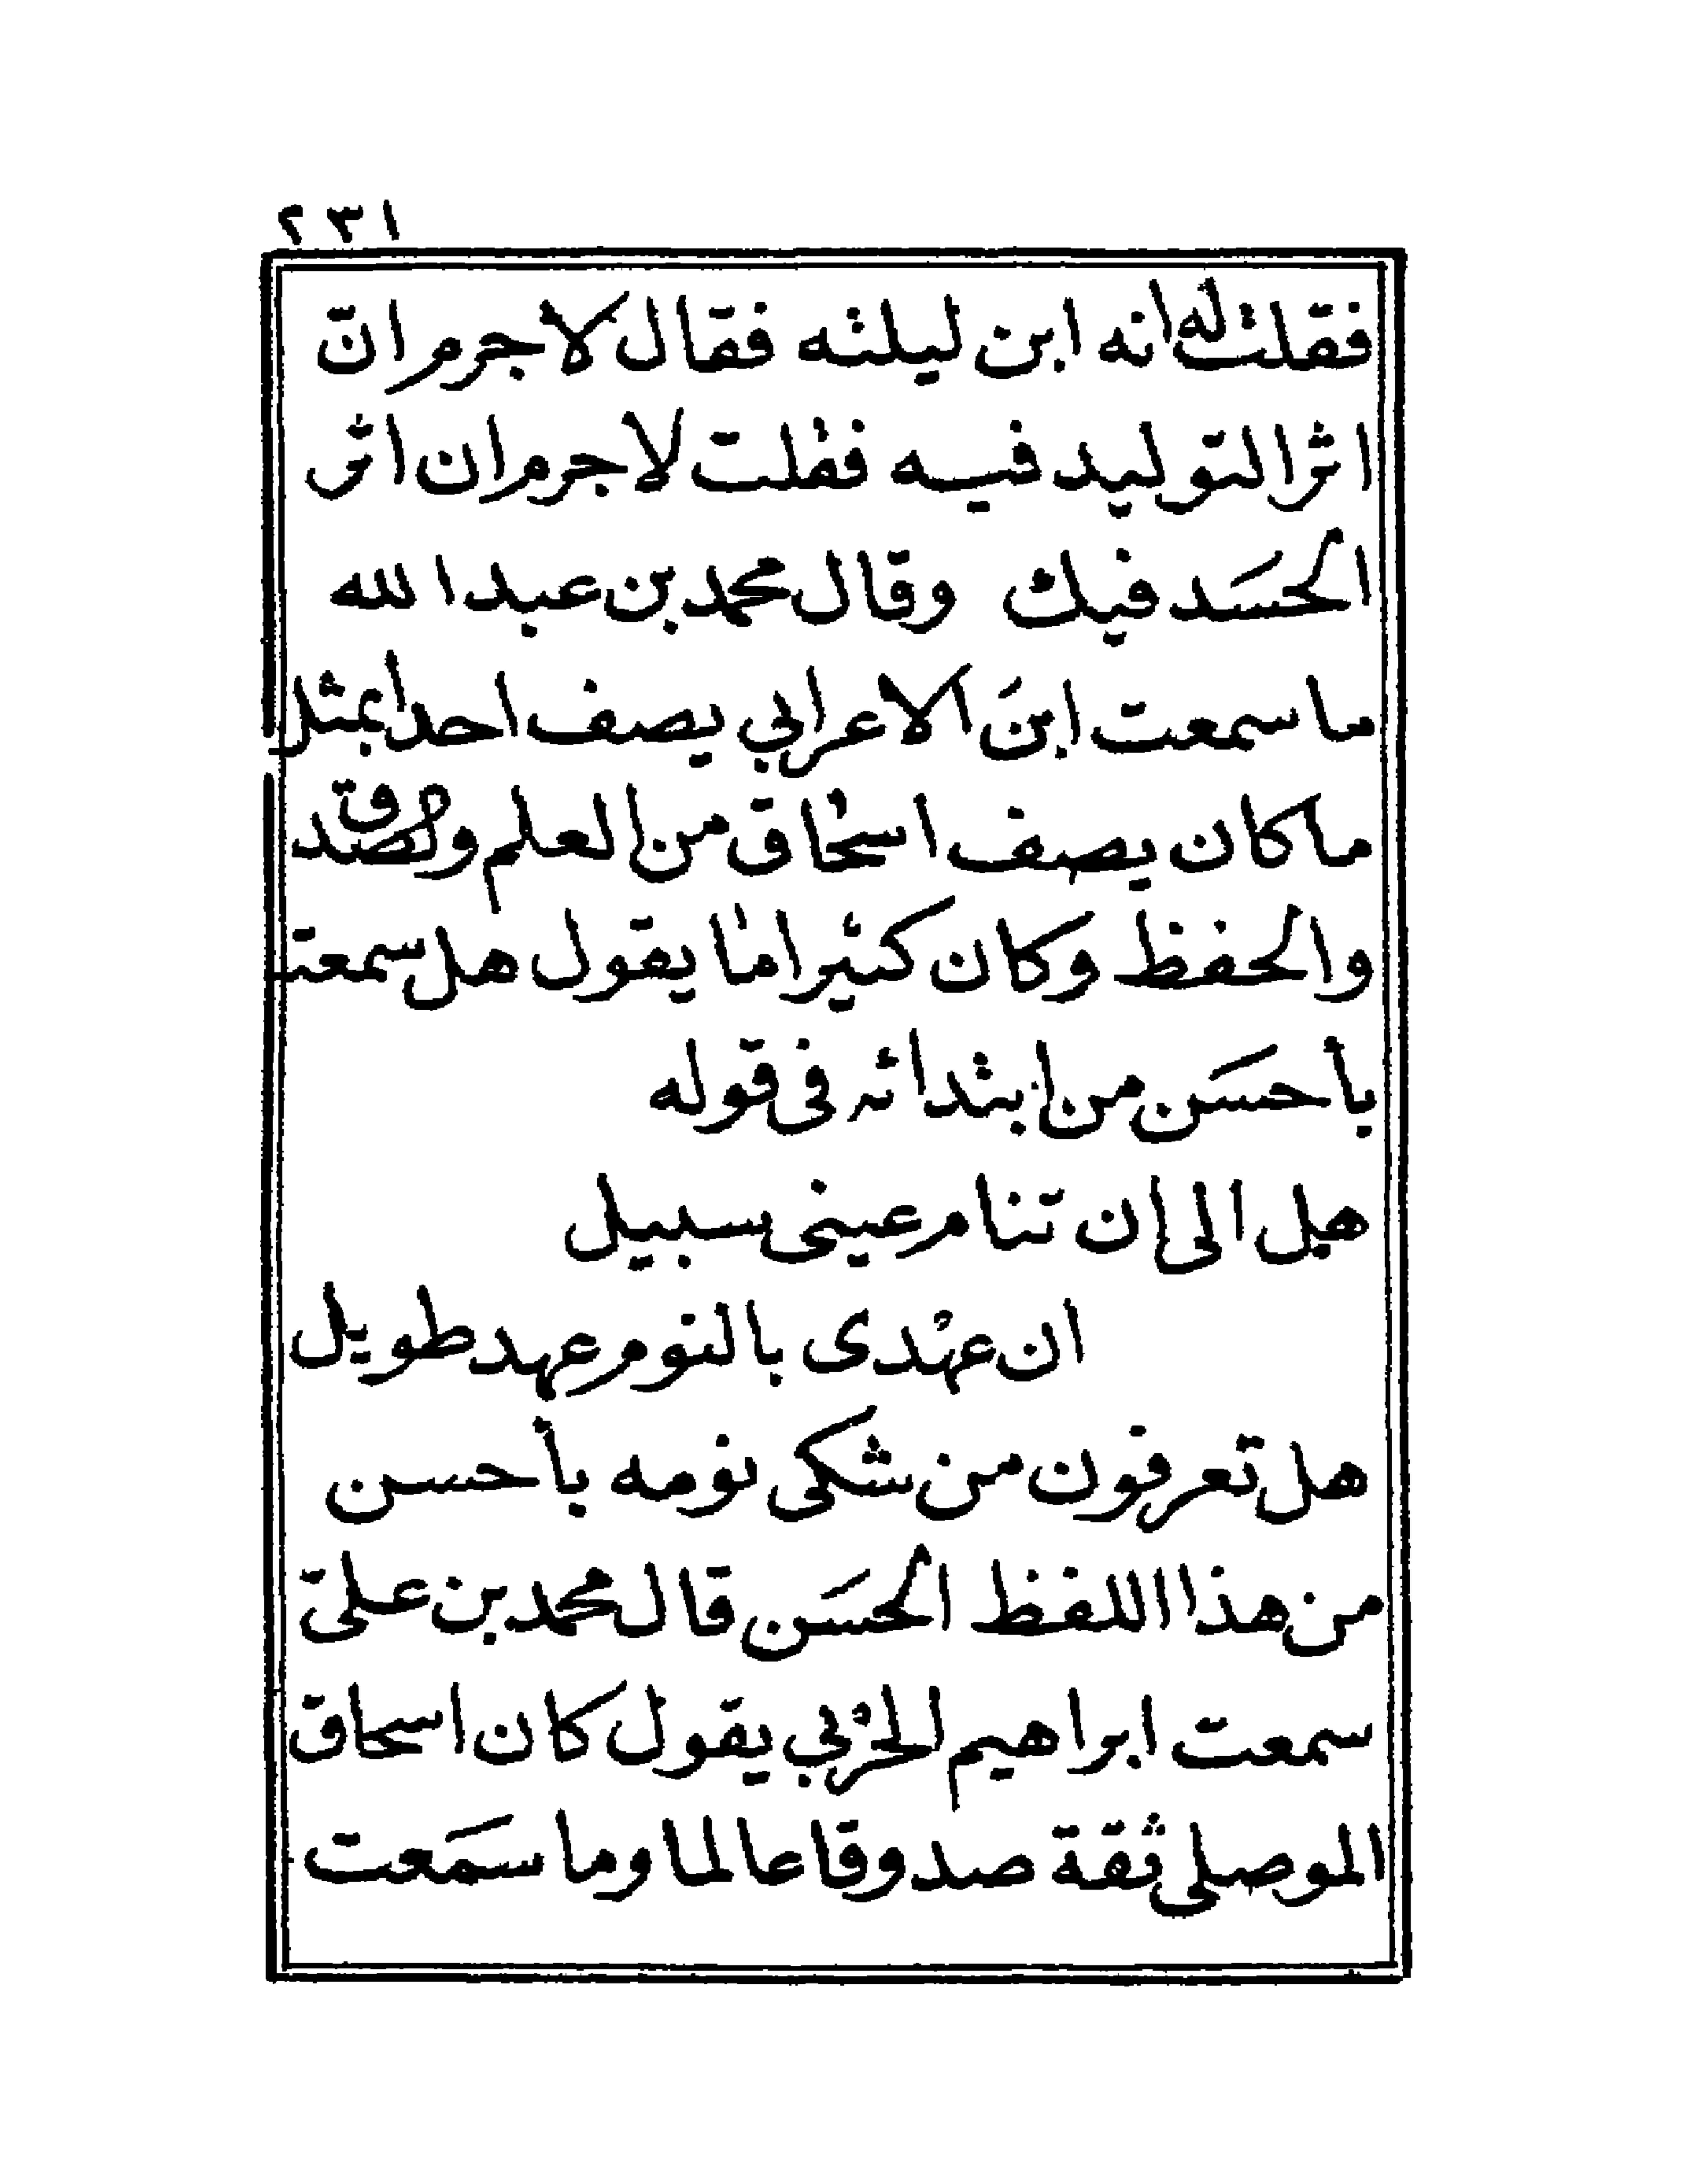 ٢٣١
فقلت له انه ابن ليلته فقال لا جرم انّ
اثر التوليد فيه فقلت لا جرم ان اثر
الحسَد فيك وقال محمد بن عبد الله
ما سمعت ابنَ الاعرابي يصف احدا بمثل
ما كان يصف اسحٰاق من العلم والصدق
والحفظ وكان كثيرا مٰا يقول هل سمعت
بأحسَن من ابتدائه فى قوله
هل الى ان تنام عينى سبيل
ان عهْدى بالنوم عهد طويل
هل تعرفون من شكى نومه بأحسن
من هذا اللفظ الحسَن قال محمد بن علىّ
سمعت ابراهيم الحرْبي يقول كان اسحاق
الموصلى ثقة صدوقا عالما وما سمَعت